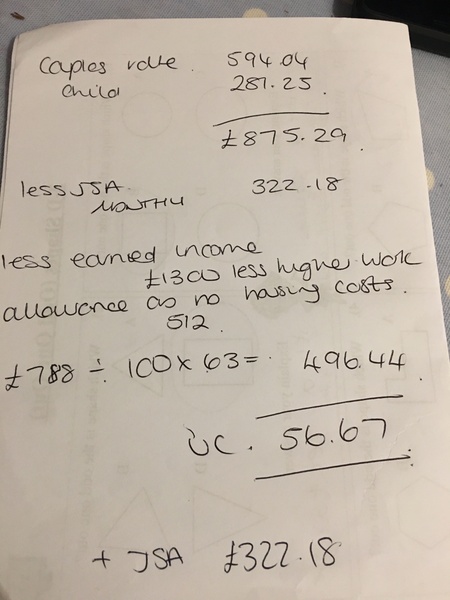 Couples rate. 594.04
Child 281.25.
£875.29.
less JSA 322.18
MONTHLY
less earned income
£1300 less higher work
allowance as no housing costs.
512.
£788 ÷ 100 x 63 = 496.44.
UC. 56.67
+ JSA £322.18